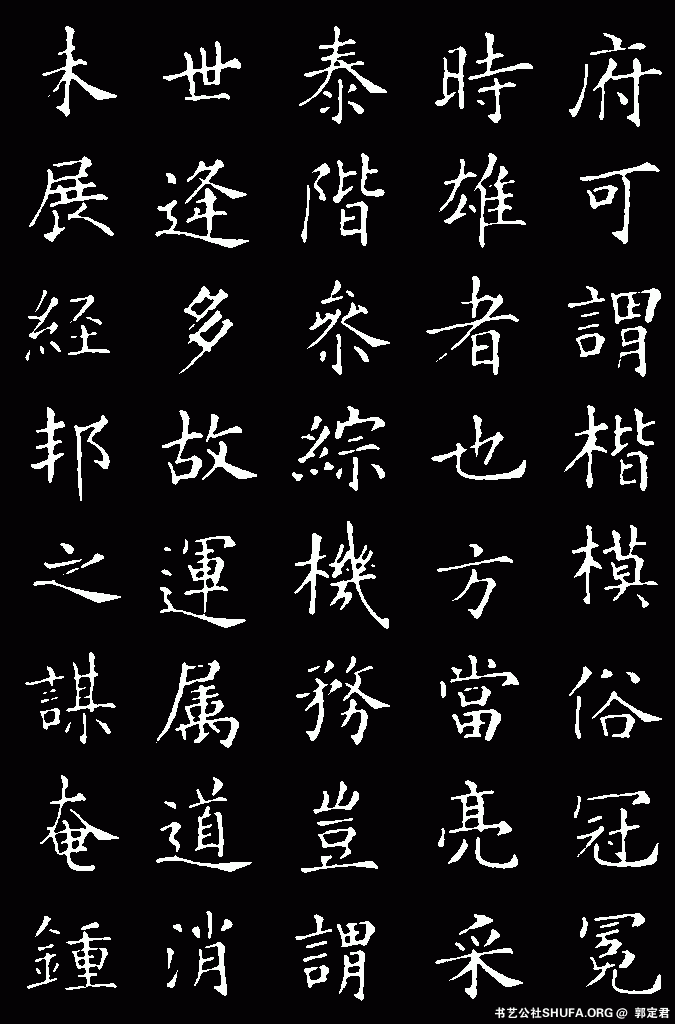 府可謂楷模俗冠冕
時雄者也方當亮采
泰階叅綜機務豈謂
世逢多故運属道消
未展経邦之謀奄鍾
书艺公社SHUFA.ORG @ 郭定君